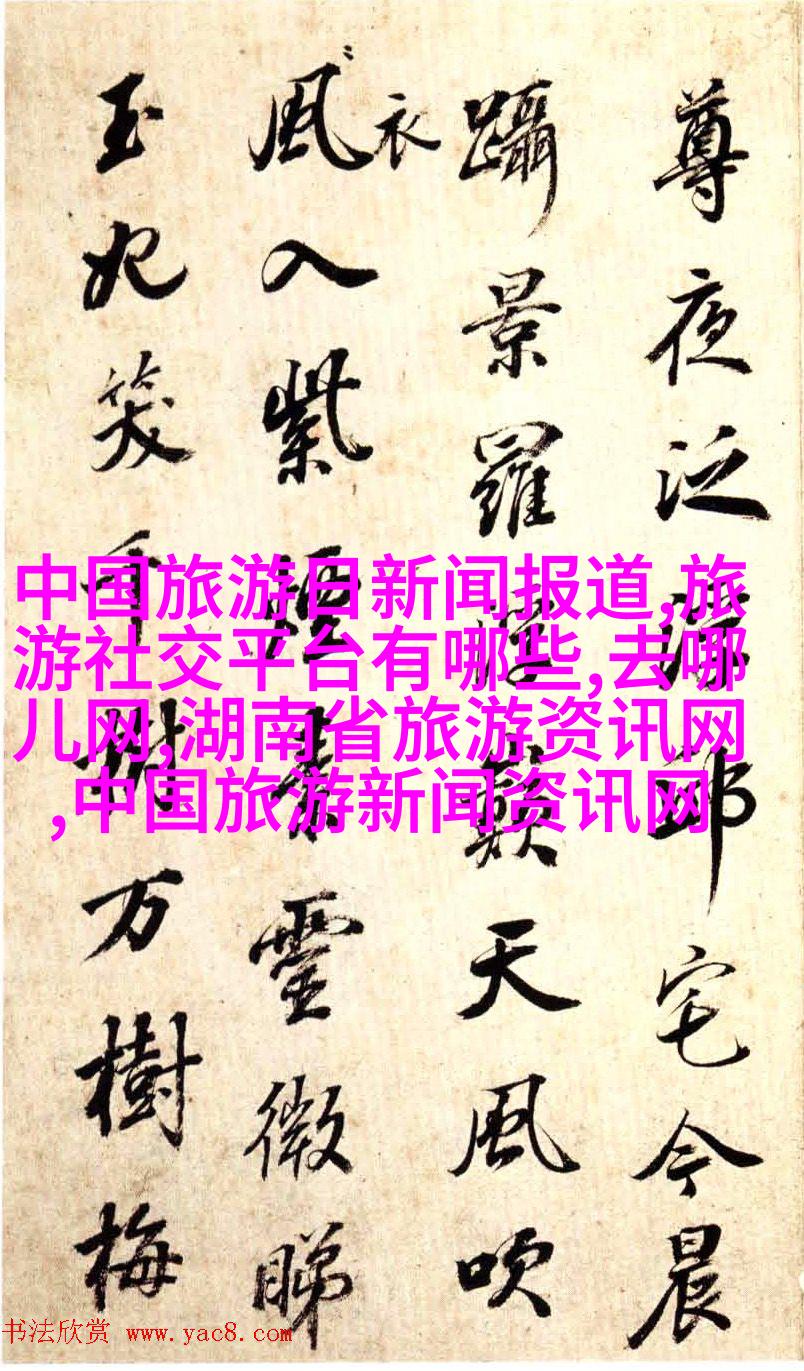 尊夜泛邱宅今晨
躡景羅天風吹
衣
風入紫煙素靈微睇
玉妃笑千樹万樹梅
中国旅游日新闻报道,旅
游社交平台有哪些,去哪
儿网,湖南省旅游资讯网
,中国旅游新闻资讯网
书法欣赏 www.yac8.com